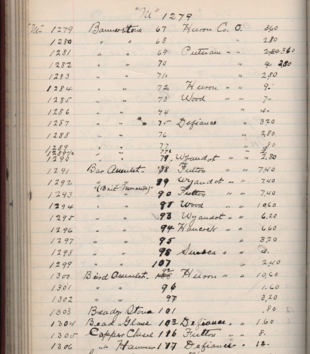 "M" 1279
"M" 1279 Bannerstone 67 Huron Co. O. 360
1280 " " 68 " " 280
1281 " " 69 Putnam " "
1282 " " 70 " "
1283 " " 71 " " 280
1284 " " 72 Huron " "
1285 " " 73 Wood " " 7-
1286 " " 74 " "
1287 " " 75 Defiance " 320
1288 " " 76 " " 280
1289 " " 77
1290 " " 79 Wyandot " " 280
1291 Bar Amulet 88 Fulton " " 740
1292 " " 89 Wyandot " " 740
1293 " " 90 Fulton " " 740
1294 " " Wood " "
1295 " " 93 Wyandot " " 620
1296 " " 94 Hancock " " 660
1297 " " 95 " " 320
1298 " " 98 " "
1299 " " 107 " " 240
1300 Bird Amulet Huron " " 1060
1301 " " 96 " " 160
1302 " " 97 " " 320
1303 Stone 101 " " 80
1304 102 Defiance " " 160
1305 Copper Chisel 186 Fulton " " 8.
1306 " 187 Defiance " " 12.